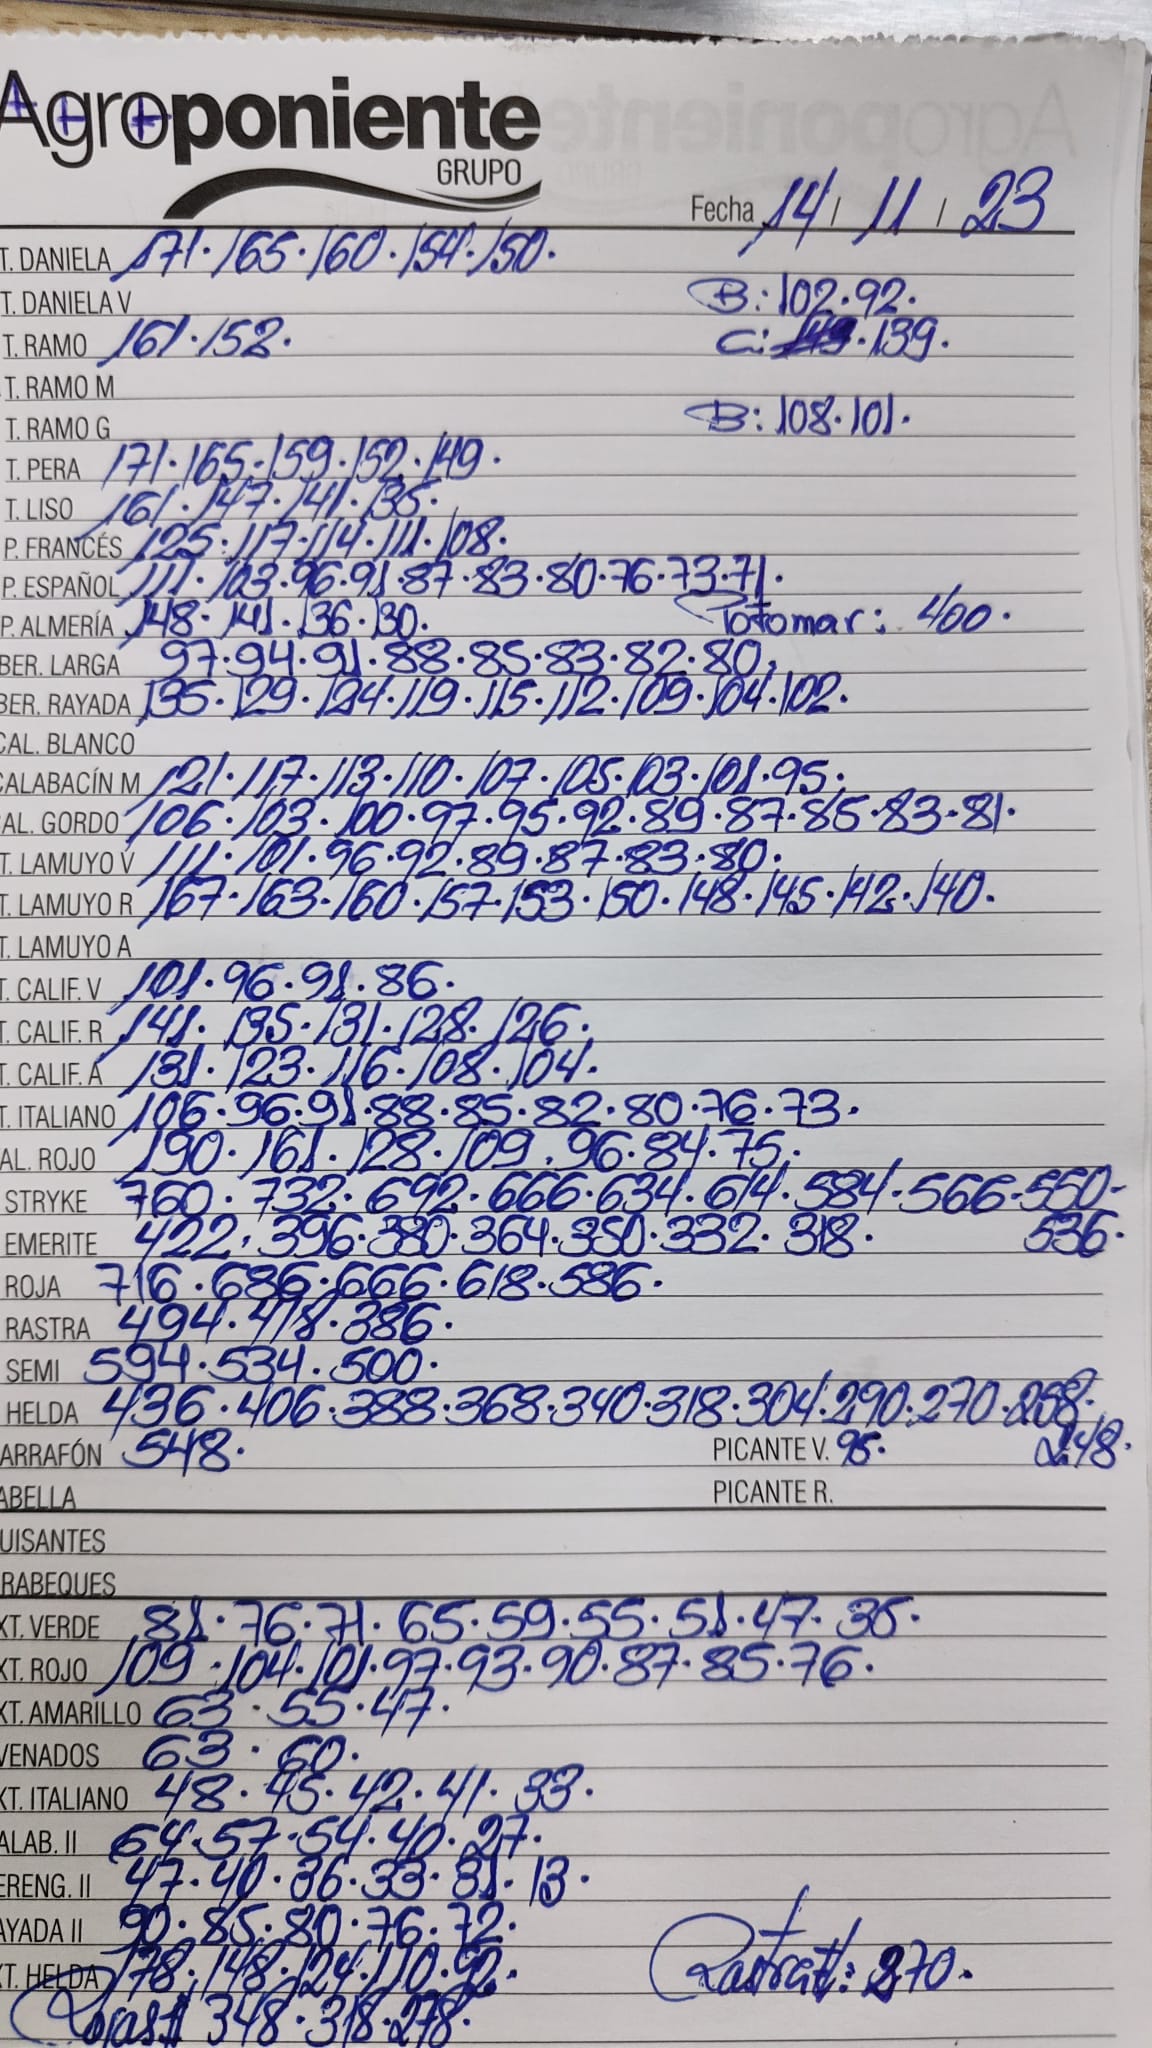 Agroponiente
GRUPO
Fecha 14 / 11 / 23
T. DANELA 171·165·160·154·150·
T. DANIELA V B: 102·92·
T. RAMO 161·152· C: 139·
T. RAMO M
T. RAMO G B: 108·101·
T. PERA 171·165·159·152·149·
T. LISO 161·147·141·135·
P. FRANCÉS 125·117·114·111·108·
P. ESPAÑOL 111·103·96·91·87·83·80·76·73·71·
P. ALMERÍA 148·141·136·130· Totomar: 400·
BER. LARGA 97·94·91·88·85·83·82·80·
BER. RAYADA 135·129·124·119·115·112·109·104·102·
CAL. BLANCO
CALABACÍN M 121·117·113·110·107·105·103·101·95·
AL. GORDO 106·103·100·97·95·92·89·87·85·83·81·
T. LAMUYO V 111·101·96·92·89·87·83·80·
T. LAMUYO R 167·163·160·157·153·150·148·145·142·140·
T. LAMUYO A
T. CALIF. V 101·96·91·86·
T. CALIF. R 141·135·131·128·126·
T. CALIF. A 131·123·116·108·104·
T. ITALIANO 106·96·91·88·85·82·80·76·73·
AL. ROJO 190·161·128·109·96·84·75·
STRYKE 760·732·692·666·634·614·584·566·550-
EMERITE 422·396·380·364·350·332·318· 536·
ROJA 716·686·666·618·586·
RASTRA 494·418·386·
SEMI 594·534·500·
HELDA 436·406·388·368·340·318·304·290·270·258·
ARRAFÓN 548· PICANTE V. 95· 248·
ABELLA PICANTE R.
UISANTES
RABEQUES
XT. VERDE 81·76·71·65·59·55·51·47·35·
XT. ROJO 109·104·101·97·93·90·87·85·76·
XT. AMARILLO 63·55·47·
VENADOS 63·60·
XT. ITALIANO 48·45·42·41·33·
ALAB. II 64·57·54·40·27·
ERENG. II 47·40·36·33·31·13·
AYADA II 90·85·80·76·72·
XT. HELDA 178·148·124·110·92· 270·
348·318·278·